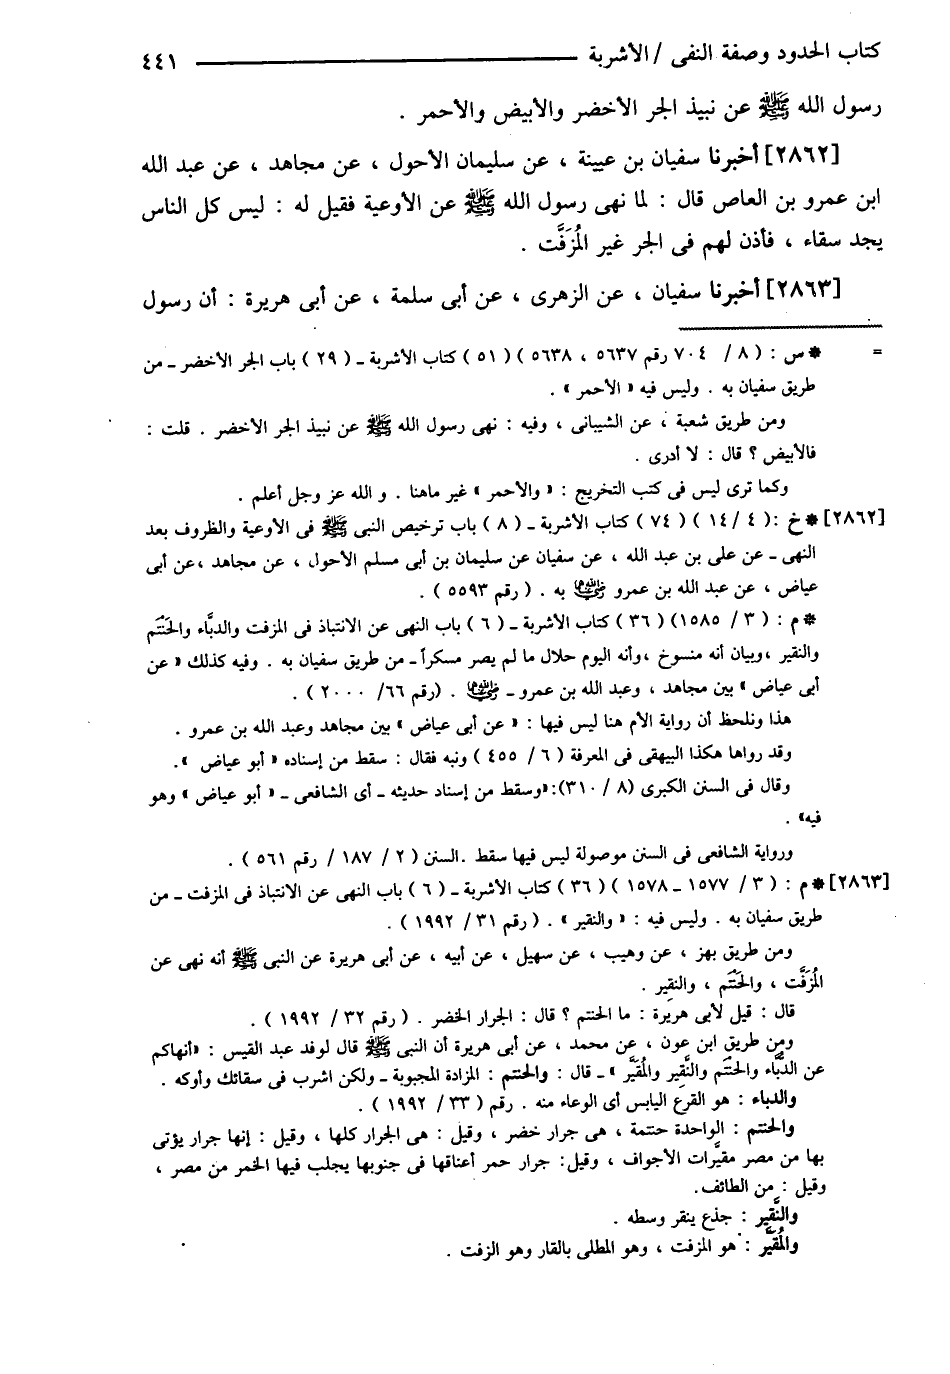 كتاب الحدود وصفة النفى / الأشربة ــــــــــــــــــ ٤٤١
رسول الله ﷺ عن نبيذ الجر الأخضر والأبيض والأحمر .
[٢٨٦٢] أخبرنا سفيان بن عيينة ، عن سليمان الأحول ، عن مجاهد ، عن عبد الله
ابن عمرو بن العاص قال : لما نهى رسول الله ﷺ عن الأوعية فقيل له : ليس كل الناس
يجد سقاء ، فأذن لهم فى الجر غير المُزَفَّت .
[٢٨٦٣] أخبرنا سفيان ، عن الزهرى ، عن أبى سلمة ، عن أبى هريرة : أن رسول
= * س : ( ٨ / ٧٠٤ رقم ٥٦٣٧ ، ٥٦٣٨ ) ( ٥١ ) كتاب الأشربة ـ ( ٢٩ ) باب الجر الأخضر ـ من
طريق سفيان به . وليس فيه « الأحمر » .
ومن طريق شعبة ، عن الشيبانى ، وفيه : نهى رسول الله ﷺ عن نبيذ الجر الأخضر . قلت :
فالأبيض ؟ قال : لا أدرى .
وكما ترى ليس فى كتب التخريج : « والأحمر » غير ماهنا . و الله عز وجل أعلم .
[٢٨٦٢] * خ : ( ٤ / ١٤ ) ( ٧٤ ) كتاب الأشربة ـ ( ٨ ) باب ترخيص النبى ﷺ فى الأوعية والظروف بعد
النهى ـ عن على بن عبد الله ، عن سفيان عن سليمان بن أبى مسلم الأحول ، عن مجاهد ،عن أبى
عياض ، عن عبد الله بن عمرو رضي الله عنهما به . ( رقم ٥٥٩٣ ) .
* م : ( ٣ / ١٥٨٥) ( ٣٦ ) كتاب الأشربة ـ ( ٦ ) باب النهى عن الانتباذ فى المزفت والدبَّاء والحَنْتَم
والنقير ،وبيان أنه منسوخ ،وأنه اليوم حلال ما لم يصر مسكراً ـ من طريق سفيان به . وفيه كذلك « عن
أبى عياض » بين مجاهد ، وعبد الله بن عمرو ـ رضي الله عنهما . (رقم ٦٦/ ٢٠٠٠ ) .
هذا ونلحظ أن رواية الأم هنا ليس فيها : « عن أبى عياض » بين مجاهد وعبد الله بن عمرو .
وقد رواها هكذا البيهقى فى المعرفة ( ٦ / ٤٥٥ ) ونبه فقال : سقط من إسناده « أبو عياض ».
وقال فى السنن الكبرى (٨ / ٣١٠):«وسقط من إسناد حديثه ـ أى الشافعى ـ « أبو عياض » وهو
فيه» .
ورواية الشافعى فى السنن موصولة ليس فيها سقط .السنن ( ٢ / ١٨٧ / رقم ٥٦١ ) .
[٢٨٦٣] * م : ( ٣ / ١٥٧٧ ـ ١٥٧٨ ) ( ٣٦ ) كتاب الأشربة ـ ( ٦ ) باب النهى عن الانتباذ فى المزفت ـ من
طريق سفيان به . وليس فيه : « والنقير » . ( رقم ٣١ / ١٩٩٢ ) .
ومن طريق بهز ، عن وهيب ، عن سهيل ، عن أبيه ، عن أبى هريرة عن النبى ﷺ أنه نهى عن
المُزَفَّت ، والحَنْتَم ، والنقير .
قال : قيل لأبى هريرة : ما الحنتم ؟ قال : الجرار الخضر . ( رقم ٣٢ / ١٩٩٢ ) .
ومن طريق ابن عون ، عن محمد ، عن أبى هريرة أن النبى ﷺ قال لوفد عبد القيس : «أنهاكم
عن الدُّبَّاء والحنتَم والنَّقِير والمُقَيَّر » ـ قال : والحنتم : المزادة المجبوبة ـ ولكن اشرب فى سقائك وأوكه .
والدباء : هو القرع اليابس أى الوعاء منه . رقم ( ٣٣ / ١٩٩٢ ) .
والحنتم : الواحدة حنتمة ، هى جرار خضر ، وقيل : هى الجرار كلها ، وقيل : إنها جرار يؤتى
بها من مصر مقيَّرات الأجواف ، وقيل: جرار حمر أعناقها فى جنوبها يجلب فيها الخمر من مصر ،
وقيل : من الطائف.
والنَّقِير : جذع ينقر وسطه .
والمُقَيَّر : هو المزفت ، وهو المطلى بالقار وهو الزفت .